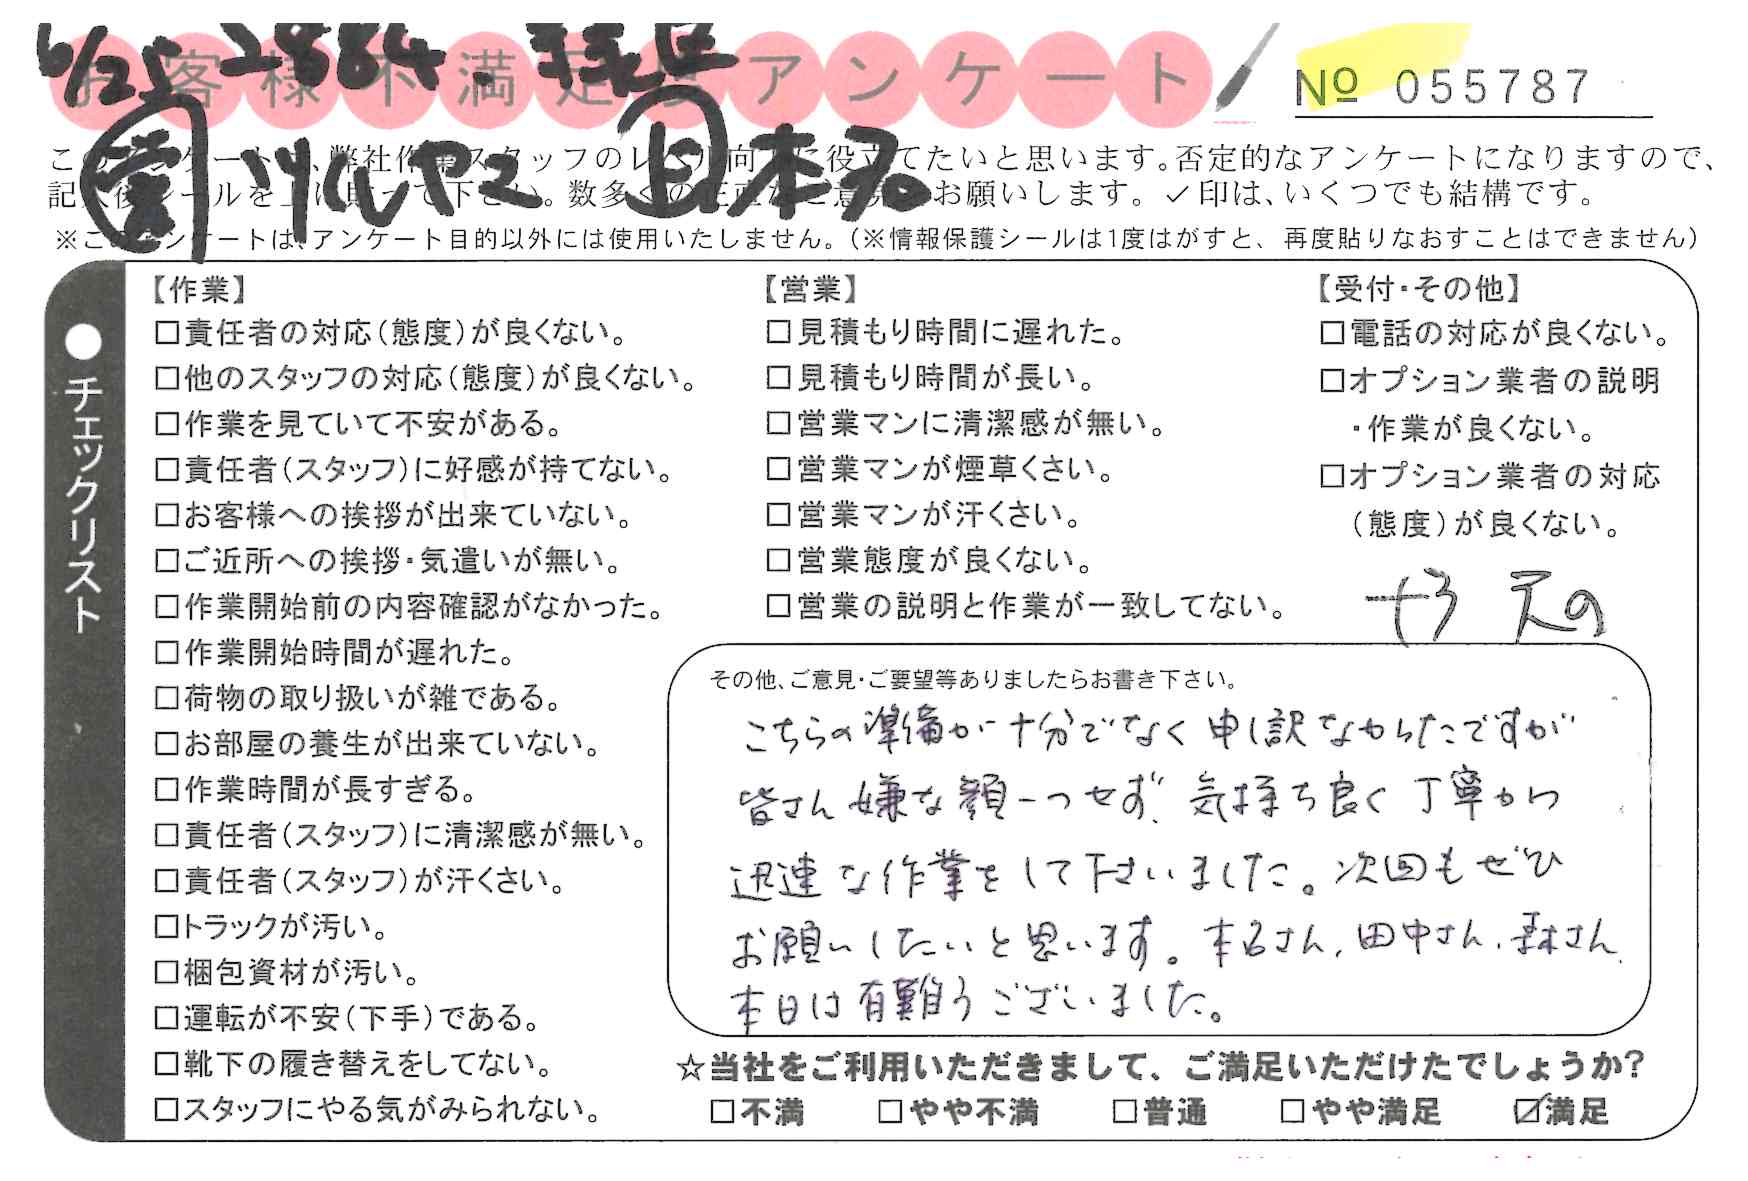 6/25 2884.
お客様不満足度アンケート
№ 055787
このアンケートは、弊社作業スタッフのレベル向上に役立てたいと思います。否定的なアンケートになりますので、
記入後シールを上に貼って下さい。数多くの正直なご意見をお願いします。✓印は、いくつでも結構です。
※このアンケートは、アンケート目的以外には使用いたしません。(※情報保護シールは1度はがすと、再度貼りなおすことはできません)
●チェックリスト
【作業】
□責任者の対応(態度)が良くない。
□他のスタッフの対応(態度)が良くない。
□作業を見ていて不安がある。
□責任者(スタッフ)に好感が持てない。
□お客様への挨拶が出来ていない。
□ご近所への挨拶・気遣いが無い。
□作業開始前の内容確認がなかった。
□作業開始時間が遅れた。
□荷物の取り扱いが雑である。
□お部屋の養生が出来ていない。
□作業時間が長すぎる。
□責任者(スタッフ)に清潔感が無い。
□責任者(スタッフ)が汗くさい。
□トラックが汚い。
□梱包資材が汚い。
□運転が不安(下手)である。
□靴下の履き替えをしてない。
□スタッフにやる気がみられない。
【営業】
□見積もり時間に遅れた。
□見積もり時間が長い。
□営業マンに清潔感が無い。
□営業マンが煙草くさい。
□営業マンが汗くさい。
□営業態度が良くない。
□営業の説明と作業が一致してない。
【受付・その他】
□電話の対応が良くない。
□オプション業者の説明
・作業が良くない。
□オプション業者の対応
(態度)が良くない。
その他、ご意見・ご要望等ありましたらお書き下さい。
こちらの準備が十分でなく申し訳なかったですが
皆さん嫌な顔一つせず、気持ち良く丁寧かつ
迅速な作業をして下さいました。次回もぜひ
お願いしたいと思います。本名さん、田中さん、森さん、
本日は有難うございました。
☆当社をご利用いただきまして、ご満足いただけたでしょうか?
□不満 □やや不満 □普通 □やや満足 ☑満足